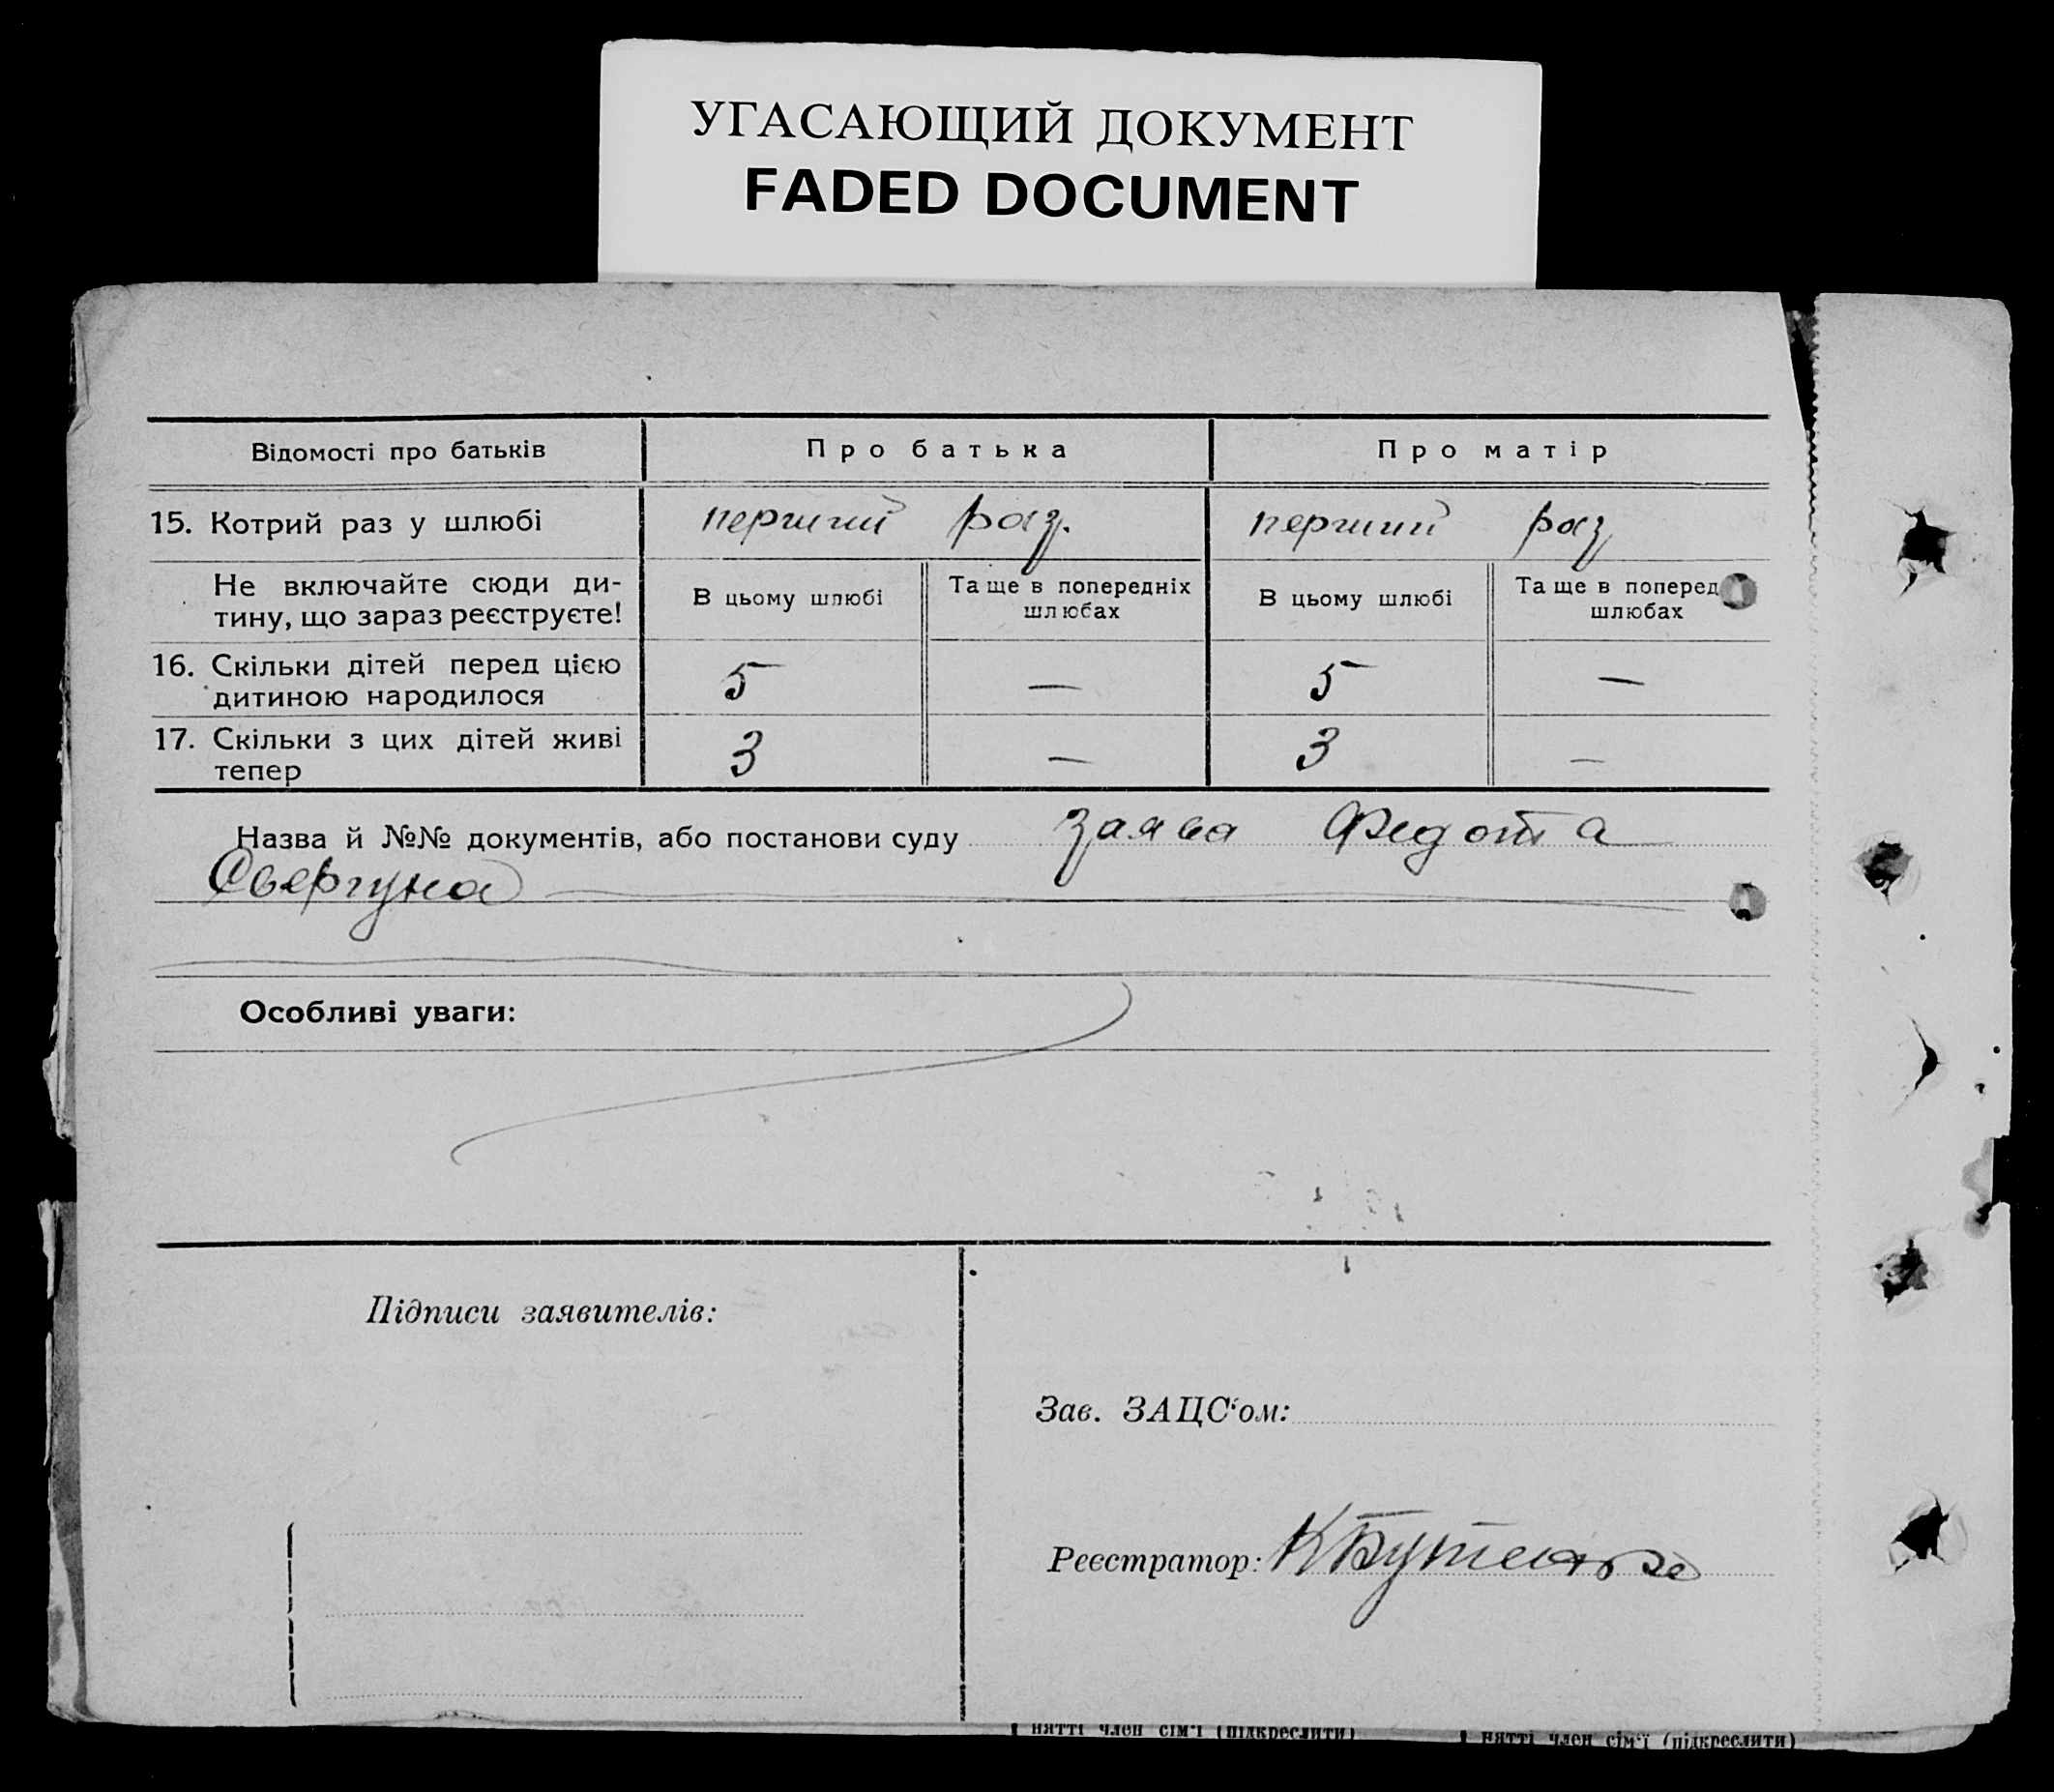 УГАСАЮЩИЙ ДОКУМЕНТ
FADED DOCUMENT
Відомості про батьків Про батька Про матір
15. Котрий раз у шлюбі перший раз. перший раз
Не включайте сюди ди-
тину, що зараз реєструєте!
В цьому шлюбі
Та ще в попередніх
шлюбах
В цьому шлюбі
Та ще в поперед
шлюбах
16. Скільки дітей перед цією
дитиною народилося 5 — 5 —
17. Скільки з цих дітей живі
тепер 3 — 3 —
Назва й №№ документів, або постанови суду заява Федота
Свергуна
Особливі уваги:
Підписи заявителів:
Зав. ЗАЦС‘ом:
Реєстратор: КБутенко
нятті член сім‘ї (підкреслити) нятті член сім‘ї (підкреслити)